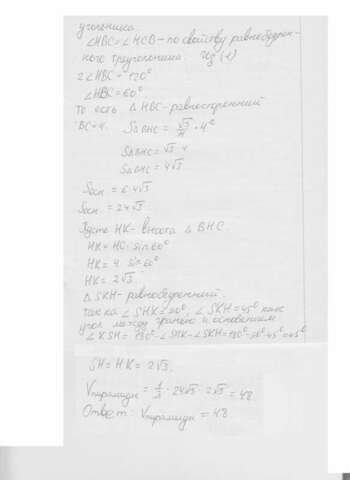 угольника.
∠HBC=∠HCB - по свойству равнобедрен-
ного треугольника. Из (1)
2∠HBC = 120°
∠HBC=60°.
То есть △HBC-равносторонний
BC=4. S△BHC = √3/4 · 4²
S△BHC = √3 · 4
S△BHC = 4√3
Sосн. = 6·4√3
Sосн. = 24√3
Пусть HK- высота △BHC.
HK=HC·sin60°
HK= 4·sin60°
HK= 2√3.
△SKH- равнобедренный.
так как ∠SHK=90°, ∠SKH=45° как
угол между гранью и основанием
∠KSH= 180°-∠SHK-∠SKH=180°-90°-45°=45°
SH=HK= 2√3.
Vпирамиды = 1/3 · 24√3 · 2√3 = 48.
Ответ: Vпирамиды = 48